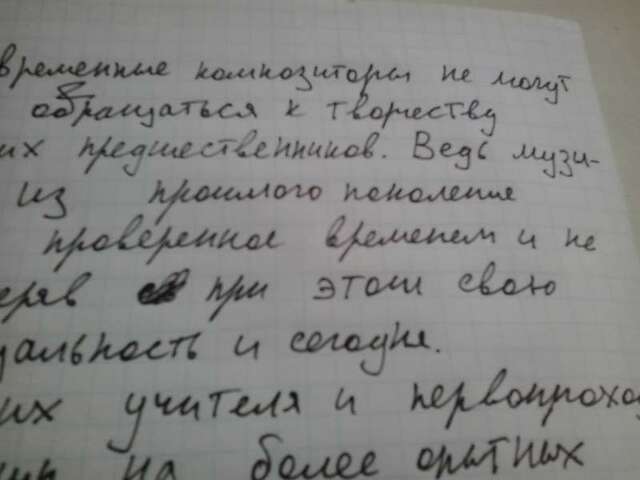 временные композиторы не могут
обращаться к творчеству
их предшественников. Ведь музы-
из прошлого поколение
проверенное временем и не
еряв при этом свою
уальность и сегодня.
их учителя и первопрохо
на более опытных